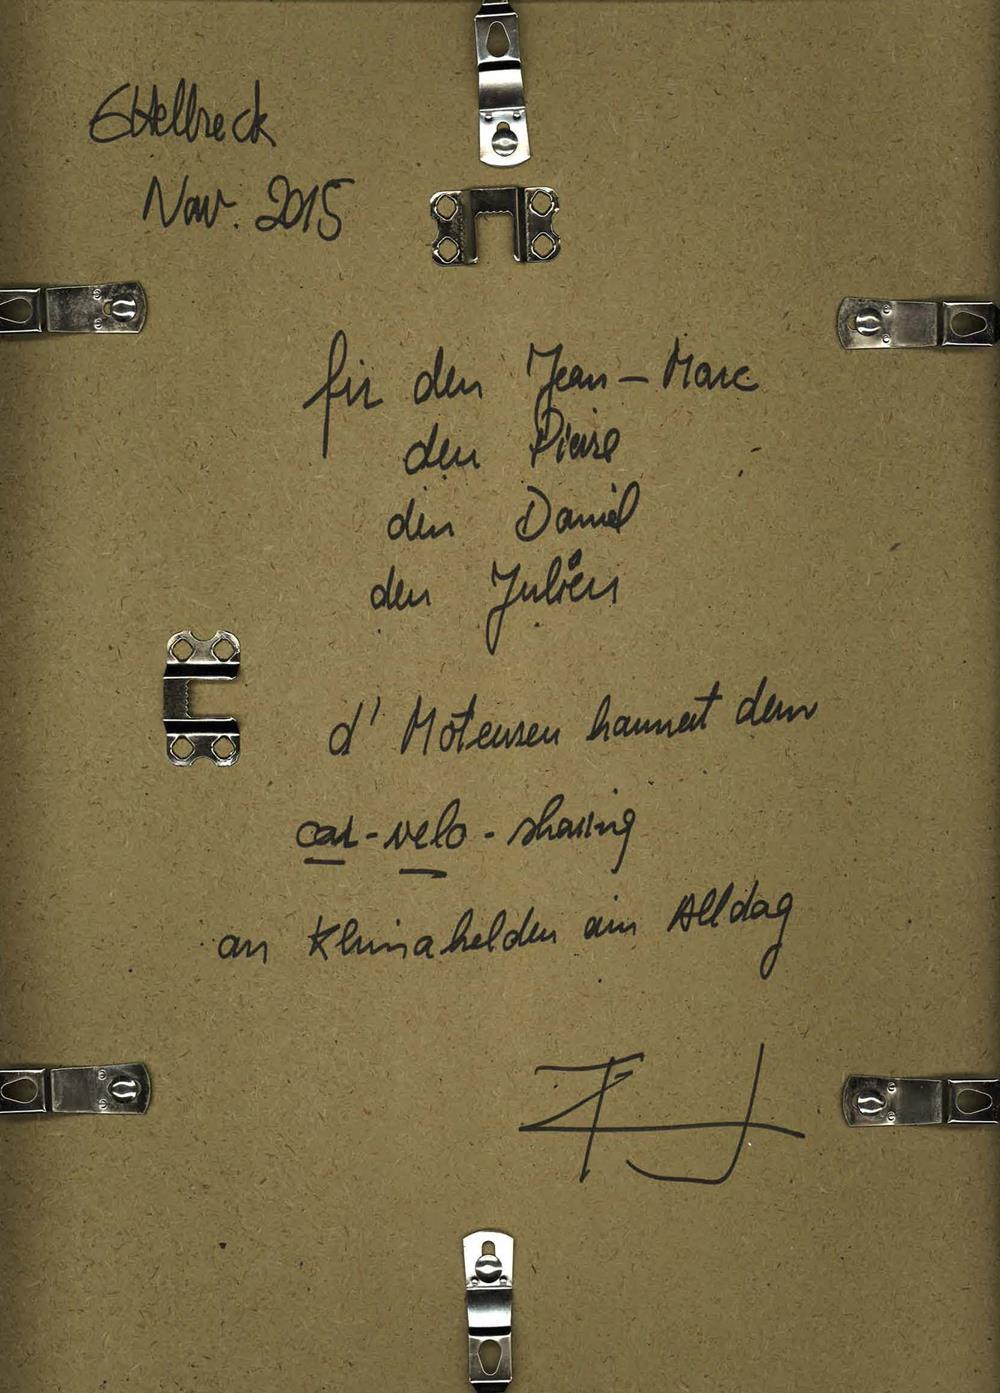 Ettelbreck
Nov. 2015
fir den Jean-Marc
den Pierre
den Daniel
den Julien
d'Moteuren hannert dem
car-velo-sharing
an Klimahelden am Alldag